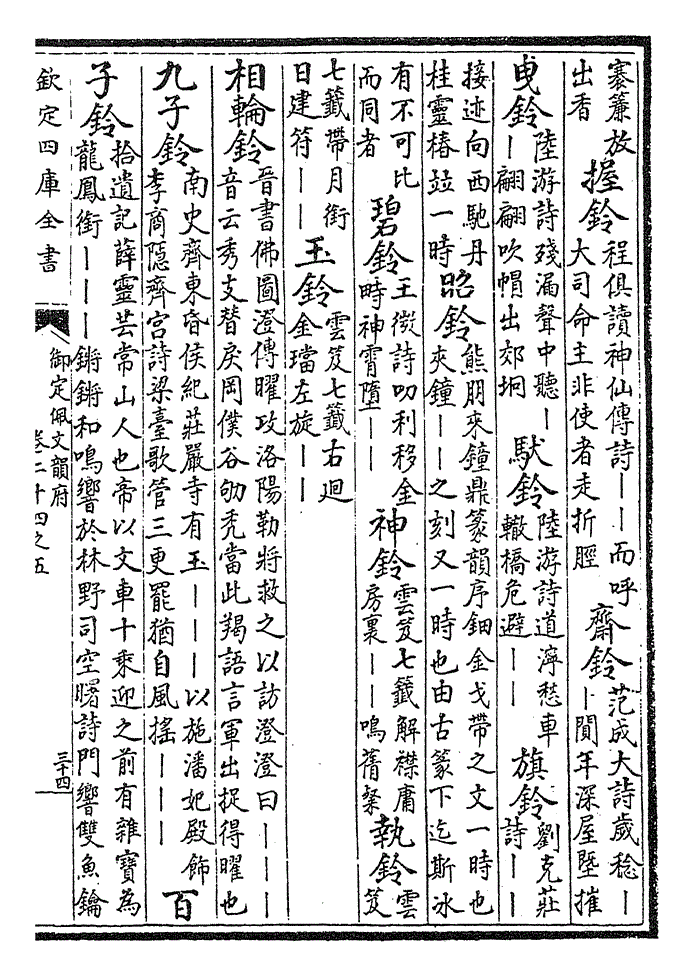 褰簾放出香　握鈴　程俱讀神仙傳詩——而呼大司命主非使者走折脛　齋鈴　范成大詩歲稔——閒年深屋壁摧
曳鈴　陸游詩殘漏聲中聽——翩翩吹帽出郊坰　馱鈴　陸游詩道濘愁車轍橋危避——　旗鈴　劉克莊詩——
接迹向西馳丹桂靈椿竝一時　昭鈴　熊朋來鐘鼎篆韻序鈿金戈帶之文一時也夾鐘——之刻又一時也由古篆下迄斯冰
有不可比而同者　碧鈴　王微詩叨利移金時神霄墮——　神鈴　雲笈七籤解襟庸房裏——鳴蒨粲　執鈴　雲笈
七籤帶月銜日建符——　玉鈴　雲笈七籤右迴金璫左旋——
相輪鈴　晉書佛圖澄傳曜攻洛陽勒將救之以訪澄澄曰———音云秀支替戾岡僕谷劬禿當此羯語言軍出捉得曜也
九子鈴　南史齊東昏侯紀莊嚴寺有玉———以施潘妃殿飾李商隱齊宮詩梁臺歌管三更罷猶自風搖———　百
子鈴　拾遺記薛靈芸常山人也帝以文車十乘迎之前有雜寶為龍鳳銜———鏘鏘和鳴響於林野司空曙詩門響雙魚鑰
欽定四庫全書
御定佩文韻府
卷二十四之五
三十四